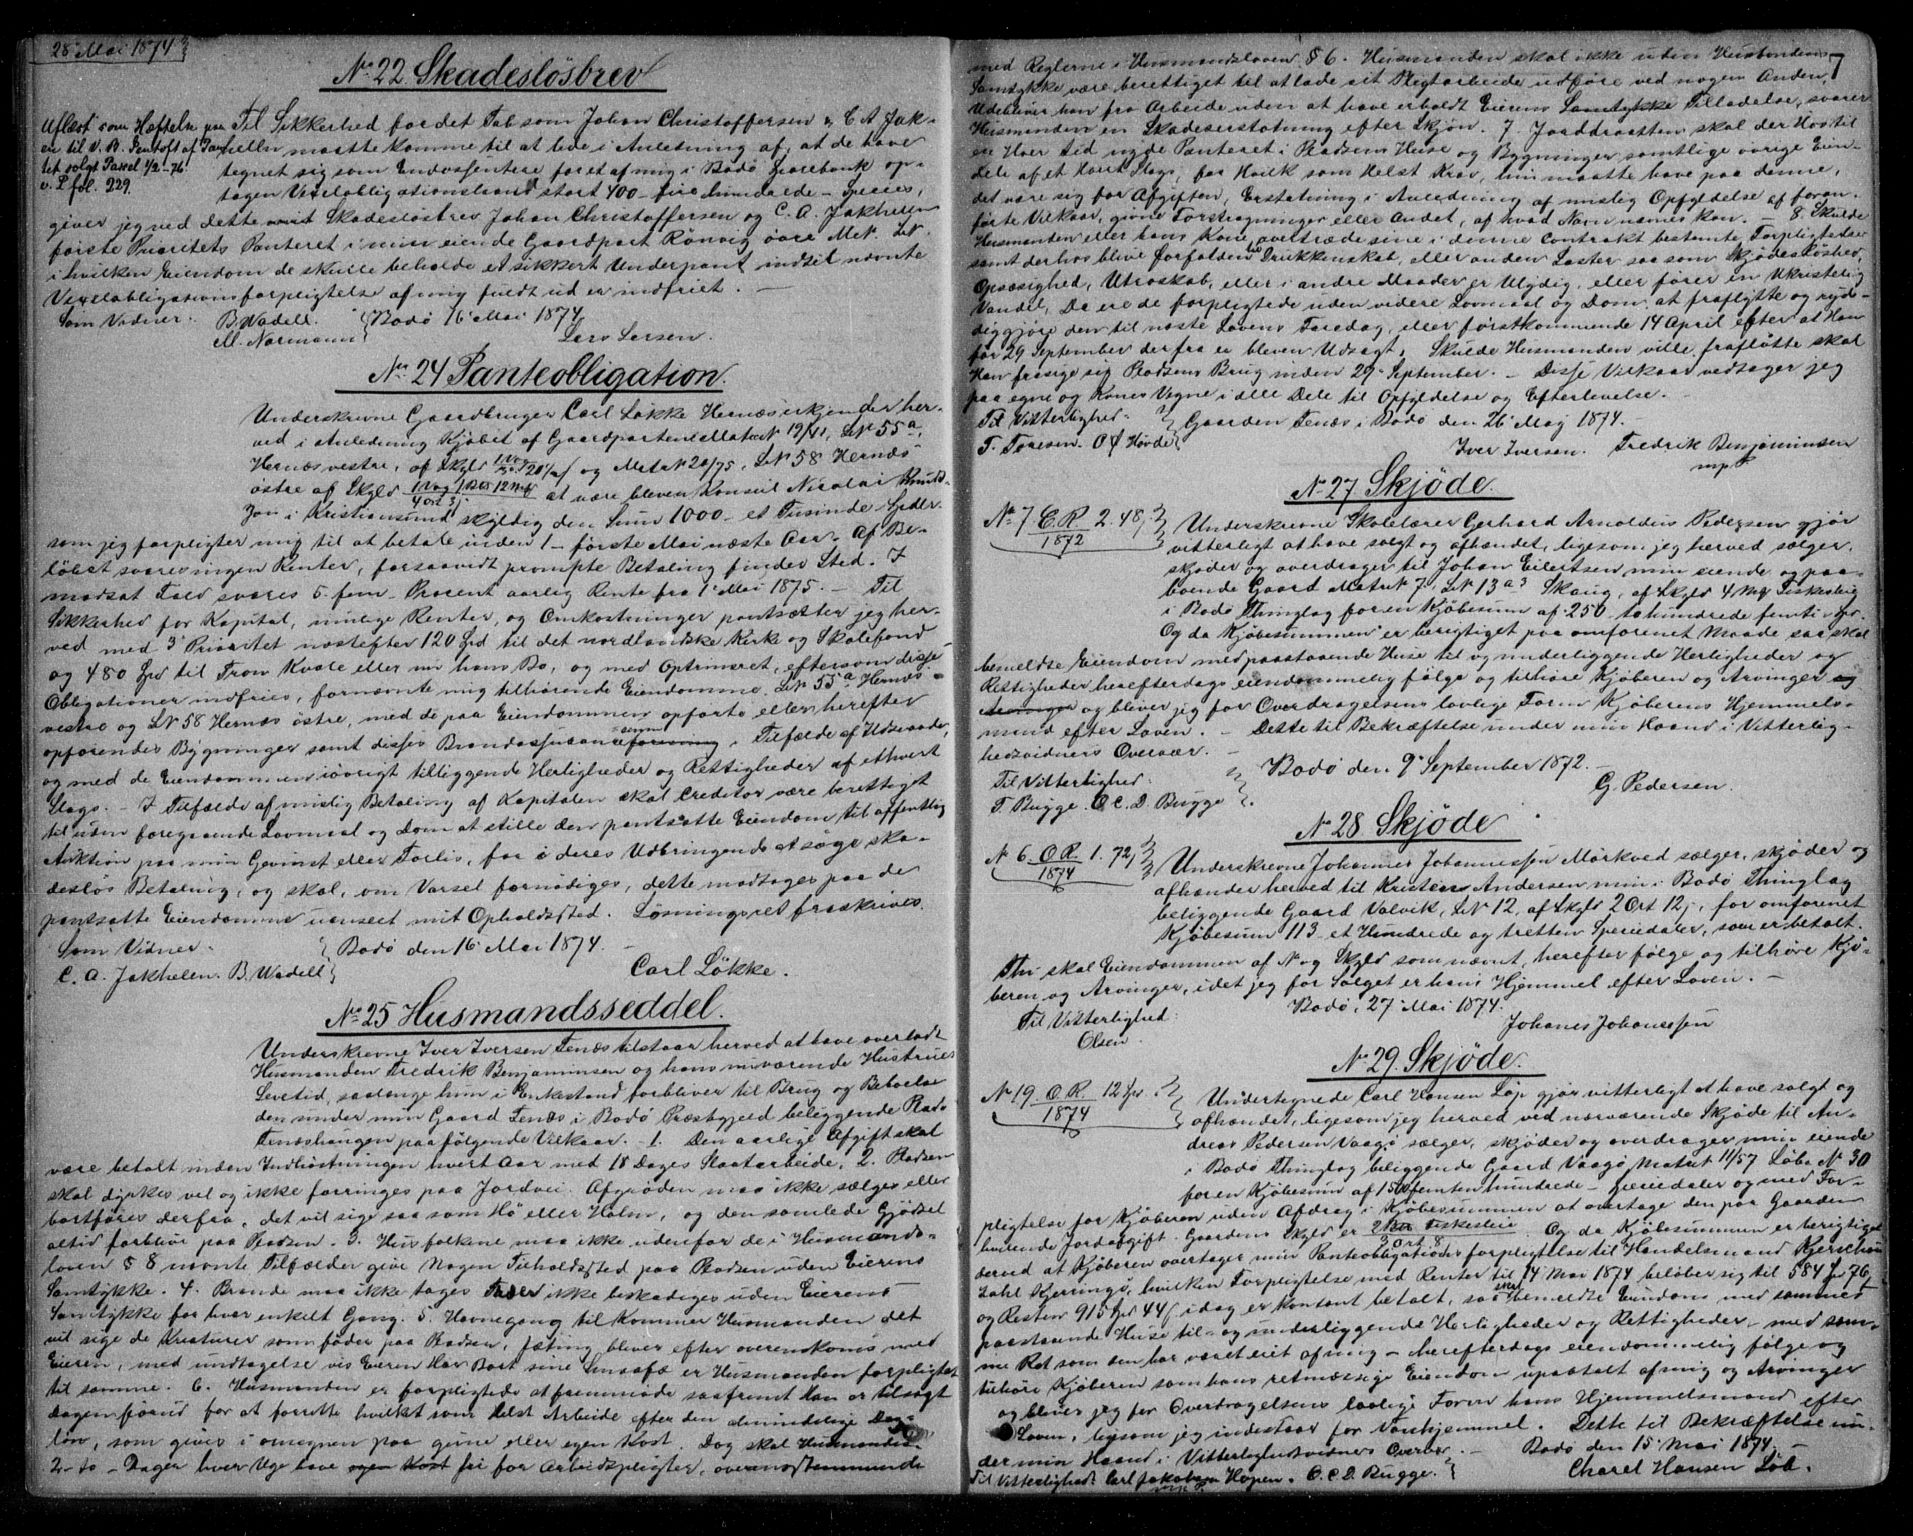 28 Mai 1874
No 22 Skadesløsbrev
Aflæst som Hæftelse paa
en til V. B. Pentoft af Jak
tet solgt Parcel 1/2-76
v. P fol. 229.
Til Sikkerhed for det Tab som Johan Christoffersen & C A Jak-
helln maatte komme til at lide i Anledning af, at de have
tegnet sig som Endossentere for et af mig i Bodø Sparebank op-
tagen Vexelobligationslaan stort 400 - fire hundrede - Species,
giver jeg ved dette Skadesløsbrev Johan Christoffersen og C. A. Jakhelln
første Prioritets Panteret i min eiende Gaardpart Rønvig øvre Mt. LN.
i hvilken Eiendom de skulle beholde et sikkert Underpant indtil nævnte
Vexelobligationsforpligtelse af mig fuldt ud er indfriet. —
Som Vidner. B. Wadell. Bodø 16 Mai 1874
M. Normann Lars Larsen.
No 24 Panteobligation.
Underskrevne Gaardbruger Carl Løkke Hernæs erkjender her-
ved i Anledning Kjøbet af Gaardparterne Matr N 19/41, LN 55a,
Hernæs vestre, af Skyld og Matr N 20/75, LN 58 Hernæs
østre af Skyld 1 Vog 1 at være bleven Konsul Nicolai Knudt-
zon i Kristiansund skyldig den Sum 1000 - et Tusinde Spdlr
som jeg forpligter mig til at betale inden 1 - første Mai næste Aar. Af Be-
løbet svares ingen Renter, forsaavidt prompte Betaling finder Sted. I
modsat Fald svares 5. fem Procent aarlig Rente fra 1 Mai 1875. — Til
Sikkerhed for Kapital, mulige Renter, og Omkostninger pantsætter jeg her-
ved med 3 Prioritet næstefter 120 Spd til det nordlandske Kirke og Skolefond
og 480 Spd til Tron Kvale eller nu hans Bo, og med Oprimeret, eftersom disse
Obligationer indfries, fornævnte mig tilhørende Eiendomme LN 55a Hernæs
vestre og LN 58 Hernæs østre, med de paa Eiendommen opførte eller herefter
opførendes Bygninger samt disses Brandassurancesum i Tilfælde af Ildsvaade,
og med de Eiendommen iøvrigt tilliggende Herligheder og Rettigheder af ethvert
Slags. - I Tilfælde af mislig Betaling af Kapitalen skal Creditor være berettiget
til uden foregaaende Lovmaal og Dom at stille den pantsatte Eiendom til offentlig
Auktion paa min Gevinst eller Forlis, for i deres Udbringende at søge ska-
desløs Betaling, og skal, om Varsel fornødiges, dette modtages paa de
pantsatte Eiendomme uanseet mit Opholdssted. Løsningsret fraskrives.
Som Vidner. Bodø den 16 Mai 1874. -
C. A. Jakhelln. B. Wadell Carl Løkke.
No 25 Husmandsseddel.
Underskrevne Iver Iversen Tenæs tilstaar herved at have overladt
Husmanden Fredrik Benjaminsen og hans nuværende Hustrues
Levetid, saalænge hun i Enkestand forbliver til Brug og Beboelse
den under min Gaard Tenæs i Bodø Præstegjeld beliggende Plads
Tenæshaugen paa følgende Vilkaar. - 1. Den aarlige Afgift skal
være betalt inden Indhøstningen hvert Aar med 18 Dages Slaatarbeide, 2. Pladsen
skal dyrkes vel og ikke forringes paa Jordvei. Afgrøden maa ikke sælges eller
bortføres derfra, det vil sige saa som Hø eller Halm, og den samlede Gjødsel
altid forblive paa Pladsen. 3. Husfolkene maa ikke udenfor de i Husmands-
loven § 8 nævnte Tilfælder give Nogen Tilholdsted paa Pladsen uden Eierens
Samtykke. 4. Brænde maa ikke tages ikke beskadiges uden Eierens
Samtykke for hver enkelt Gang. 5. Havnegang til kommer Husmanden det
vil sige de Kreaturer som føder paa Pladsen, Jæting bliver efter overenskoms med
Eieren, med undtagelse vis Eieren Har Bort sine Smaafæ er Husmanden forpligtet
til samme. 6. Husmanden er forpligtede at fremmøde saafremt Han er tilsagt
Dagen forud for at forrette hvilket som Helst Arbeide efter den almindelige Dag-
løn, som gives i omegnen paa givne eller egen Kost. Dog skal Husmanden
2 - to - Dager hver Uge have fri for Arbeidspligter, overensstemmende
7
med Reglerne i Husmandsloven § 6. Husmanden skal ikke uden Husbondens
Samtykke være berettiget til at lade sit Pligtarbeide udføre ved nogen Anden,
Udebliver han fra Arbeide uden at have erholdt Eierens Samtykke Tilladelse, svarer
Husmanden en Skadeserstatning efter Skjøn. 7. Jorddrotten skal der Hos til
en Hver tid nyde Panteret i Pladsens Huse og Bygninger samtlige øvrige Eien-
dele af et Hvert Slags, for Hvilk som Helst Krav, han maatte have paa denne,
det være sig for Afgiften, Erstatning i Anledning af mislig Opfyldelse af foran-
førte Vilkaar, givne Forstrækninger eller andet, af hvad Navn nævnes kan. - 8. Skulde
Husmanden eller hans Kone overtræde sine i denne Contrakt bestemte Forpligtelser
samt derhos blive forfalden til Drukkenskab, eller anden Laster saa som Skjødesløshed,
Opsæsighed, Utroskab, eller i andre Maader er Ulydig, eller fører en Ukristelig
Vandel, Da ere de forpligtede uden videre Lovmaal og Dom, at fraflytte og ryd-
diggjøre den til næste Lovens Faredag, eller førstkommende 14 April efter at Han
før 29 September derfra er bleven Udsagt. Skulde Husmanden ville frafløtte skal
Han frasige sig Pladsens Brug inden 29 September. - Disse Vilkaar vedtager jeg
paa egne og Kones Vegne i alle Dele til Opfyldelse og Efterlevelse. -
Til Vitterlighed. Gaarden Tenæs i Bodø den 26 Maj 1874.
T. Toresen. O J Hovde Iver Iversen. Fredrik Benjaminsen
mpP.
No 27 Skjøde.
No 7 C.R. 2.48,
1872
Underskrevne Skolelærer Gerhard Arnoldus Pedersen gjør
vitterligt at have solgt og afhændet, ligesom jeg herved sælger,
skjøder og overdrager til Johan Eilertsen min eiende og paa-
boende Gaard Matr N 7, LN 13a3 Skaug, af Skyld 4 Mrk Fiskesleie
i Bodø Thinglag for en Kjøbesum af 250 - tohundrede femti - Spd.
Og da Kjøbesummen er berigtiget paa omforenet Maade saa skal
bemeldte Eiendom med paastaaende Huse til og underliggende Herligheder og
Rettigheder herefterdags eiendommelig følge og tilhøre Kjøberen og Arvinger og
Arvinger og bliver jeg for Overdragelsens lovlige Form Kjøberens Hjemmels-
mand efter Loven. - Dette til Bekræftelse under min Haand i Vitterlig-
hedsvidners Overvær. -
Til Vitterlighed: Bodø den 9 September 1872. -
T. Bugge. O. C. D. Bugge G. Pedersen.
No 28 Skjøde
No 6 C.R. 1.72,
1874
Underskrevne Johannes Johannessen Mørkved sælger, skjøder og
afhænder herved til Kristen Andersen min i Bodø Thinglag
beliggende Gaard Valvik, LN 12, af Skyld 2 Ort 12, for omforenet
Kjøbesum 113 - et Hundrede og tretten Speciedaler, som er betalt.
Thi skal Eiendommen af N og Skyld som nævnt, herefter følge og tilhøre Kjø-
beren og Arvinger, idet jeg for Salget er hans Hjemmel efter Loven. -
Bodø, 27 Mai 1874.
Til Vitterlighed: Johanes Johanesen
Olsen.
No 29. Skjøde.
No 19. C.R. 12
1874
Undertegnede Carl Hansen Løp gjør vitterligt at have solgt og
afhændet, ligesom jeg herved ved nærværende Skjøde til An-
dreas Pedersen Vaagø sælger, skjøder og overdrager min eiende
i Bodø Thinglag beliggende Gaard Vaagø Matr N 11/57 Løbe N 30
for en Kjøbesum af 1500 femten hundrede - speciedaler og med For-
pligtelse for Kjøberen uden Afdrag i Kjøbesummen at overtage den paa Gaarden
hvilende Jordafgift. Gaardens Skyld er 2 Fiskesleie Og da Kjøbesummen er berigtiget
derved at Kjøberen overtager min Panteobligations forpligtelse til Handelsmand Kjerschow
Zahl Kjerringø, hvilken Forpligtelse med Renter til 14 Mai 1874 beløber sig til 584 76
og Resten 915 44 idag er kontant betalt, saa skal bemeldte Eiendom med sammes
paastaaende Huse til- og underliggende Herligheder og Rettigheder - med sam-
me Ret som den har været eiet af mig - herefterdags eiendommelig følge og
tilhøre Kjøberen som hans retmæssige Eiendom upaatalt af mig og Arvinger
og bliver jeg for Overdragelsens lovlige Form hans Hjemmelsmand efter
Loven, ligesom jeg indestaar for Vanhjemmel. Dette til Bekræftelse un-
der min Haand i Vitterlighedsvidners Overvær. - Bodø den 15 Mai 1874. -
Til Vitterlighed: Carl Jakobsen Hopen. O. C. D. Bugge. Charel Hansen Løb.
mpP.